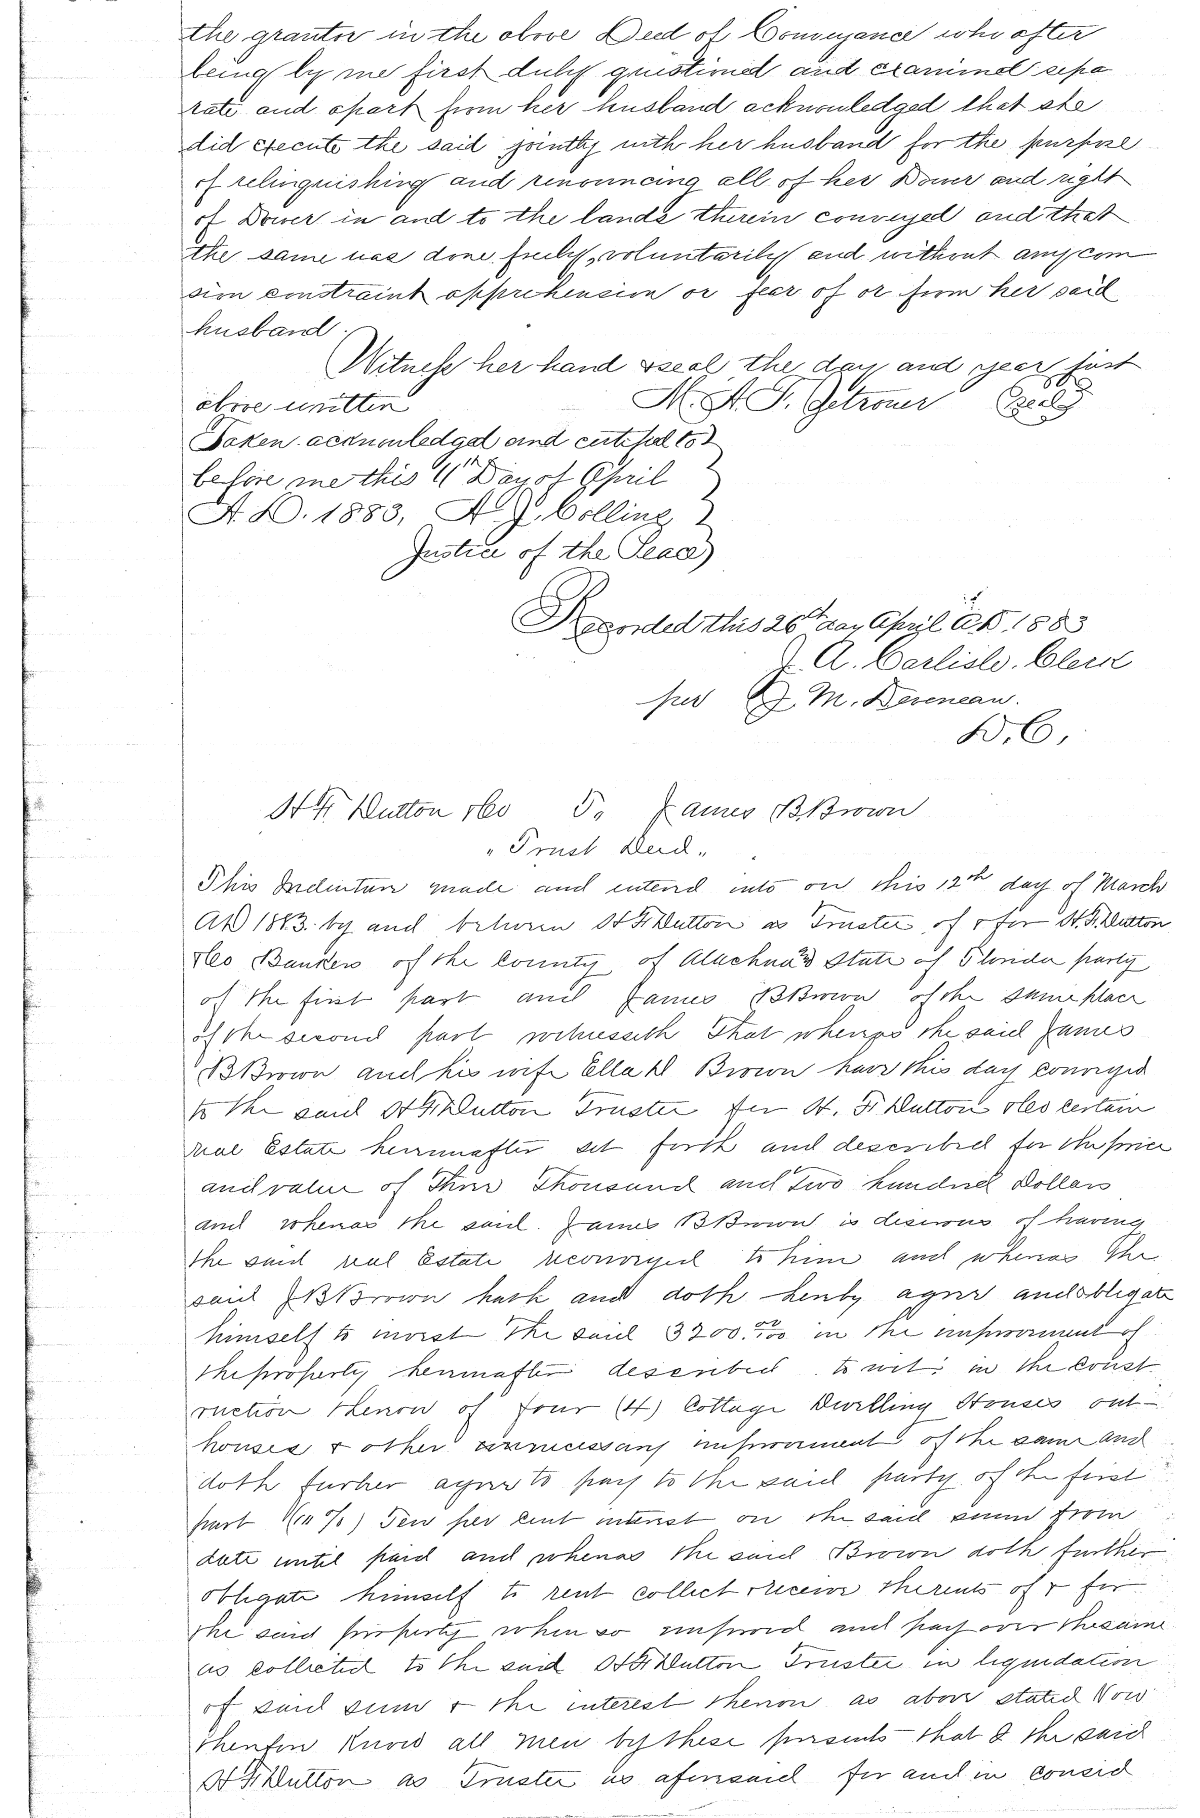 the grantor in the above Deed of Conveyance who after
being by me first duly questioned and examined sepa
rate and apart from her husband acknowledged that she
did execute the said jointly with her husband for the purpose
of relinquishing and renouncing all of her Dower and right
of Dower in and to the lands therein conveyed and that
the same was done freely, voluntarily and without any com
sion constraint apprehension or fear of or from her said
husband.
Witness her hand & seal the day and year first
above written M. A. F. Getroner (Seal)
Taken acknowledged and certified to
before me this 4" Day of April
A.D. 1883, A. J. Colling
Justice of the Peace
Recorded this 26th day April A.D. 1883
J. A. Carlisle. Clerk
per M. Deveneau.
D. C,
H F. Dutton & Co To James B. Brown
"Trust Deed"
This Indenture made and entered into on this 12th day of March
AD 1883. by and between H F Dutton as Trustee of & for H. F. Dutton
& Co Bankers of the County of Alachua & State of Florida party
of the first part and James B Brown of the same place
of the second part witnesseth That whereas the said James
B Brown and his wife Ella Brown have this day conveyed
to the said H F Dutton Trustee for H. F. Dutton & Co certain
real Estate hereinafter set forth and described for the price
and value of Three Thousand and Two hundred Dollars
and whereas the said James B Brown is desirous of having
the said real Estate reconveyed to him and whereas the
said J B Brown hath and doth hereby agree and obligate
himself to invest the said 3200.00/100 in the improvement of
the property hereinafter described to wit: in the const
ruction thereon of four (4) Cottage Dwelling Houses out-
houses & other necessary improvement of the same and
doth further agree to pay to the said party of the first
part (10 %) Ten per cent interest on the said sum from
date until paid and whereas the said Brown doth further
obligate himself to rent collect & receive the rents of & for
the said property when so improved and pay over the same
as collected to the said H F Dutton Trustee in liquidation
of said sum & the interest thereon as above stated Now
therefore Know all men by these presents that I the said
H F Dutton as Trustee as aforesaid for and in consid